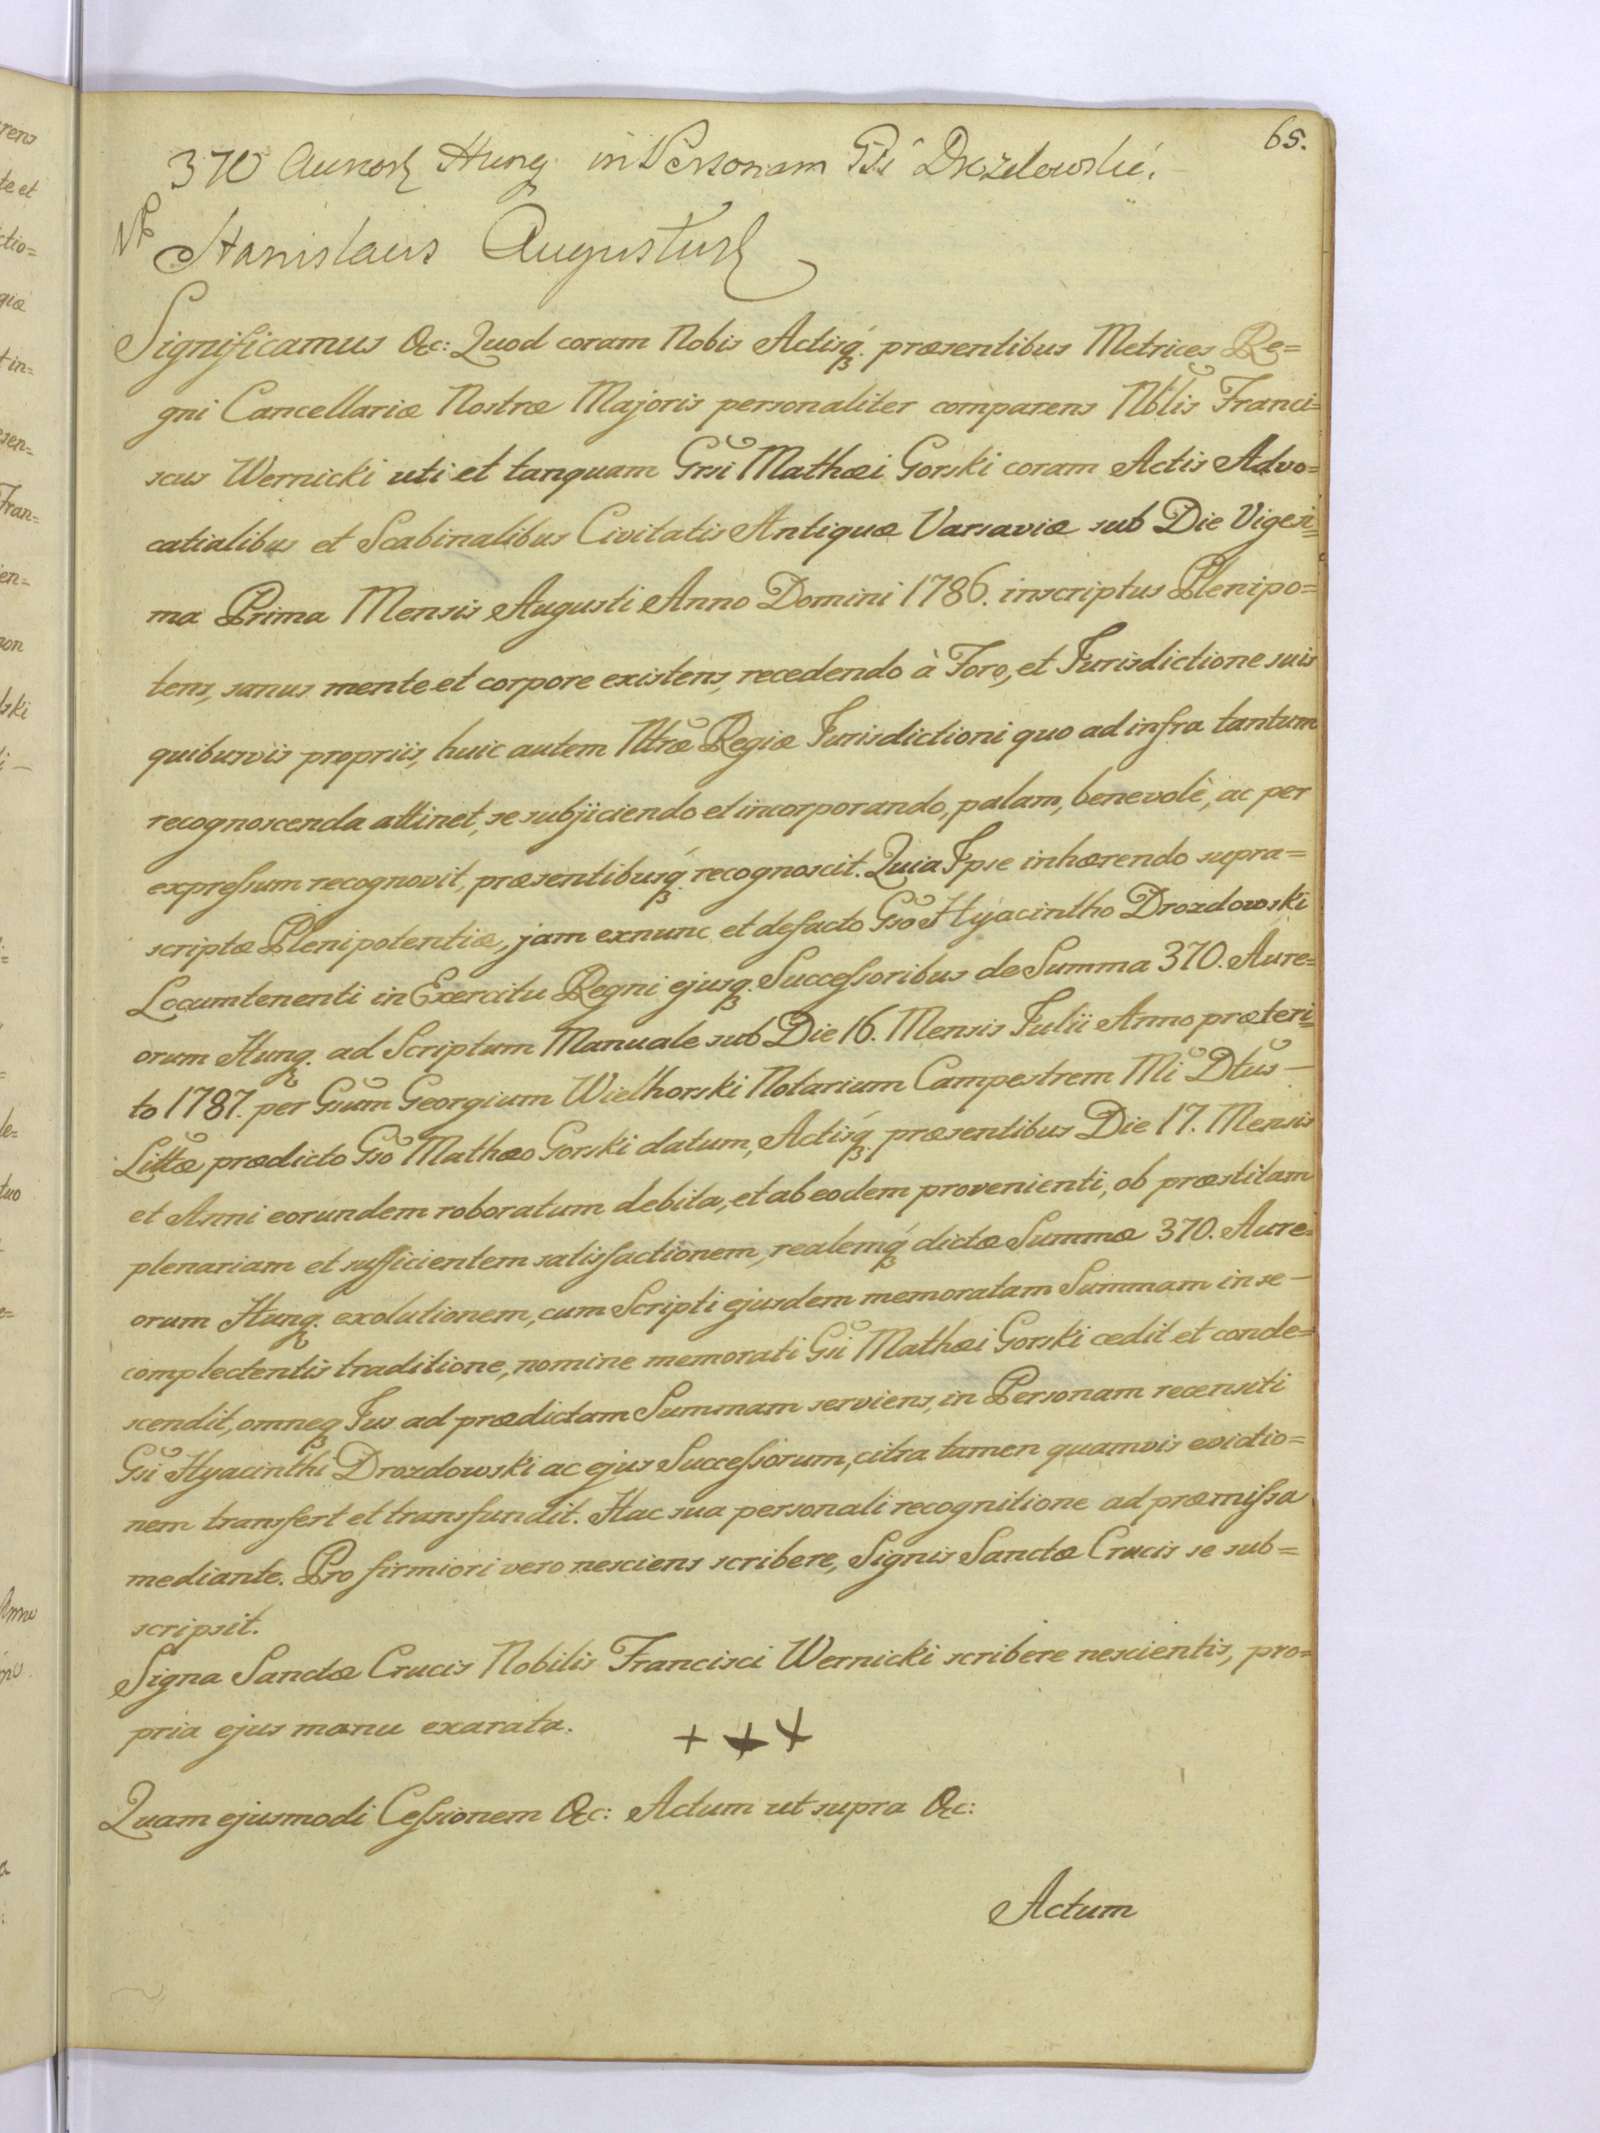 65.
370 Aureor Hung in Personam Gsi Drozdowski.
Stanislaus Augustus
Significamus &c: Quod coram Nobis Actisq. præsentibus Metrices Re=
gni Cancellariæ Nostræ Majoris personaliter comparens Nblis Franci=
scus Wernicki uti et tanquam Grsi Mathæi Gorski coram Actis Advo=
catialibus et Scabinalibus Civitatis Antiquæ Varsaviæ sub Die Vigesi=
ma Prima Mensis Augusti Anno Domini 1786. inscriptus Plenipo=
tens, sanus mente et corpore existens, recedendo à Foro, et Jurisdictione suis
quibusvis propriis, huic autem Ntræ Regiæ Jurisdictioni quo ad infra tantum
recognoscenda attinet, se subjiciendo et incorporando, palam, benevolè, ac per
expressum recognovit, præsentibusq. recognoscit. Quia Ipse inhærendo supra=
scriptæ Plenipotentiæ, jam exnunc et defacto Gso Hyacintho Drozdowski
Locumtenenti in Exercitu Regni ejusq. Successoribus de Summa 370. Aure=
orum Hung. ad Scriptum Manuale sub Die 16. Mensis Julii Anno præteri=
to 1787. per Gsum Georgium Wielhorski Notarium Campestrem Mi Dtus —
Littæ prædicto Gso Mathæo Gorski datum, Actisq. præsentibus Die 17. Mensis
et Anni eorundem roboratum debita, et ab eodem provenienti, ob præstitam
plenariam et sufficientem satisfactionem, realemq dictæ Summæ 370. Aure=
orum Hung. exolutionem, cum Scripti ejusdem memoratam Summam in se —
complectentis traditione, nomine memorati Gsi Mathæi Gorski cedit et conde=
scendit, omneq Jus ad prædictam Summam serviens, in Personam recensiti
Gsi Hyacinthi Drozdowski ac ejus Successorum, citra tamen quamvis evictio=
nem transfert et transfundit. Hac sua personali recognitione ad præmissa
mediante. Pro firmiori vero nesciens scribere, Signis Sanctæ Crucis se sub=
scripsit.
Signa Sanctæ Crucis Nobilis Francisci Wernicki scribere nescientis, pro=
pria ejus manu exarata. + + +
Quam ejusmodi Cessionem &c: Actum ut supra &c:
Actum